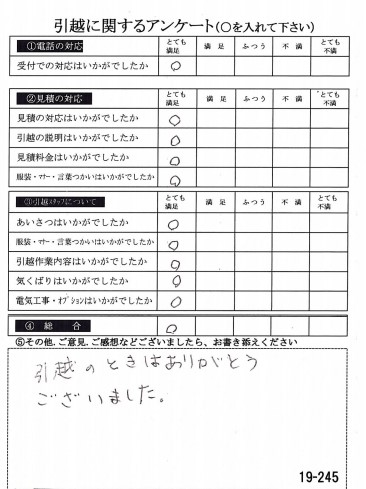 引越に関するアンケート(○を入れて下さい)
①電話の対応 とても満足 満足 ふつう 不満 とても不満
受付での対応はいかがでしたか ○
②見積の対応 とても満足 満足 ふつう 不満 とても不満
見積の対応はいかがでしたか ○
引越の説明はいかがでしたか ○
見積料金はいかがでしたか ○
服装・マナー・言葉つかいはいかがでしたか ○
③引越スタッフについて とても満足 満足 ふつう 不満 とても不満
あいさつはいかがでしたか ○
服装・マナー・言葉つかいはいかがでしたか ○
引越作業内容はいかがでしたか ○
気くばりはいかがでしたか ○
電気工事・オプションはいかがでしたか ○
④ 総 合 ○
⑤その他、ご意見、ご感想などございましたら、お書き添えください
引越のときはありがとう
ございました。
19-245